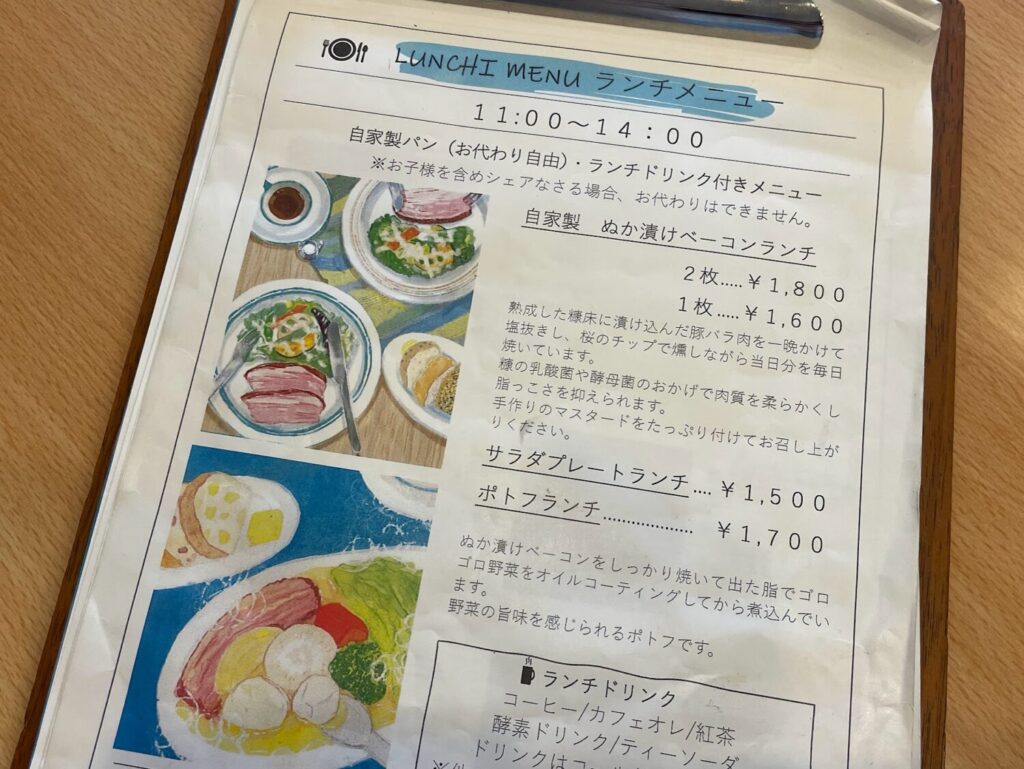 LUNCHI MENU ランチメニュー
11:00～14：00
自家製パン（お代わり自由）・ランチドリンク付きメニュー
※お子様を含めシェアなさる場合、お代わりはできません。
自家製 ぬか漬けベーコンランチ
2枚.....￥1,800
1枚.....￥1,600
熟成した糠床に漬け込んだ豚バラ肉を一晩かけて
塩抜きし、桜のチップで燻しながら当日分を毎日
焼いています。
糠の乳酸菌や酵母菌のおかげで肉質を柔らかくし
脂っこさを抑えられます。
手作りのマスタードをたっぷり付けてお召し上が
りください。
サラダプレートランチ....￥1,500
ポトフランチ..................￥1,700
ぬか漬けベーコンをしっかり焼いて出た脂でゴロ
ゴロ野菜をオイルコーティングしてから煮込んでい
ます。
野菜の旨味を感じられるポトフです。
ランチドリンク
コーヒー/カフェオレ/紅茶
酵素ドリンク/ティーソーダ
ドリンクは